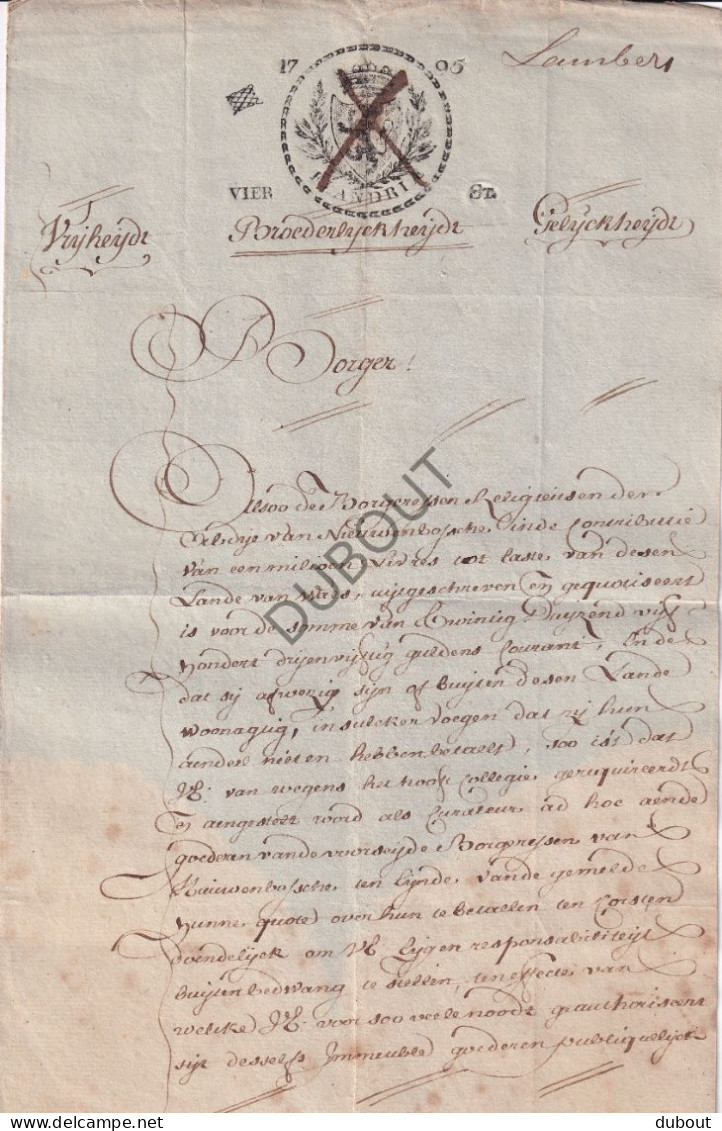 17 95 Lambers
FLANDRIÆ
VIER St.
Vrijheijdt Broederlyckheijdt Gelyckheijdt
Borger!
Alsoo de Borgeressen Religieusen der
Abdye van Nieuwenbossche, inde contributie
van een milioen Livres tot laste van desen
Lande van Waes, uijtgeschreven en gequotiseert
is voor de somme van twintig duijzend vijf
hondert drijenvijftig guldens courant, en de
dat sij afwezig sijn of buijten desen Lande
woonagtig, in sulcker voegen dat zij hun
aendeel niet en hebben betaelt, soo is't dat
UL. van wegens het hoof collegie gerequireerdt
en aengestelt word als Curateur ad hoc aende
goederen vande voorseijde Borgeressen van
Nieuwenbossche ten eynde vande gemelde
hunne quote over hun te betallen ten corsten
doendelijck om UL eijgen responsabiliteijt
buijten bedwang te stellen, ten effecte van
welcke UL. voor soo veele noodt geauthoriseert
sijt desselfs Immeuble goederen publiquelijck
DUBOUT
dubout